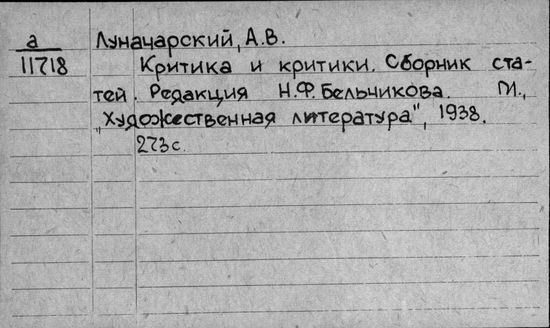 а Луначарский, А.В.
11718 Критика и критики. Сборник ста-
тей. Редакция Н.Ф.Бельчикова. М.,
"Художественная литература", 1938.
273с.